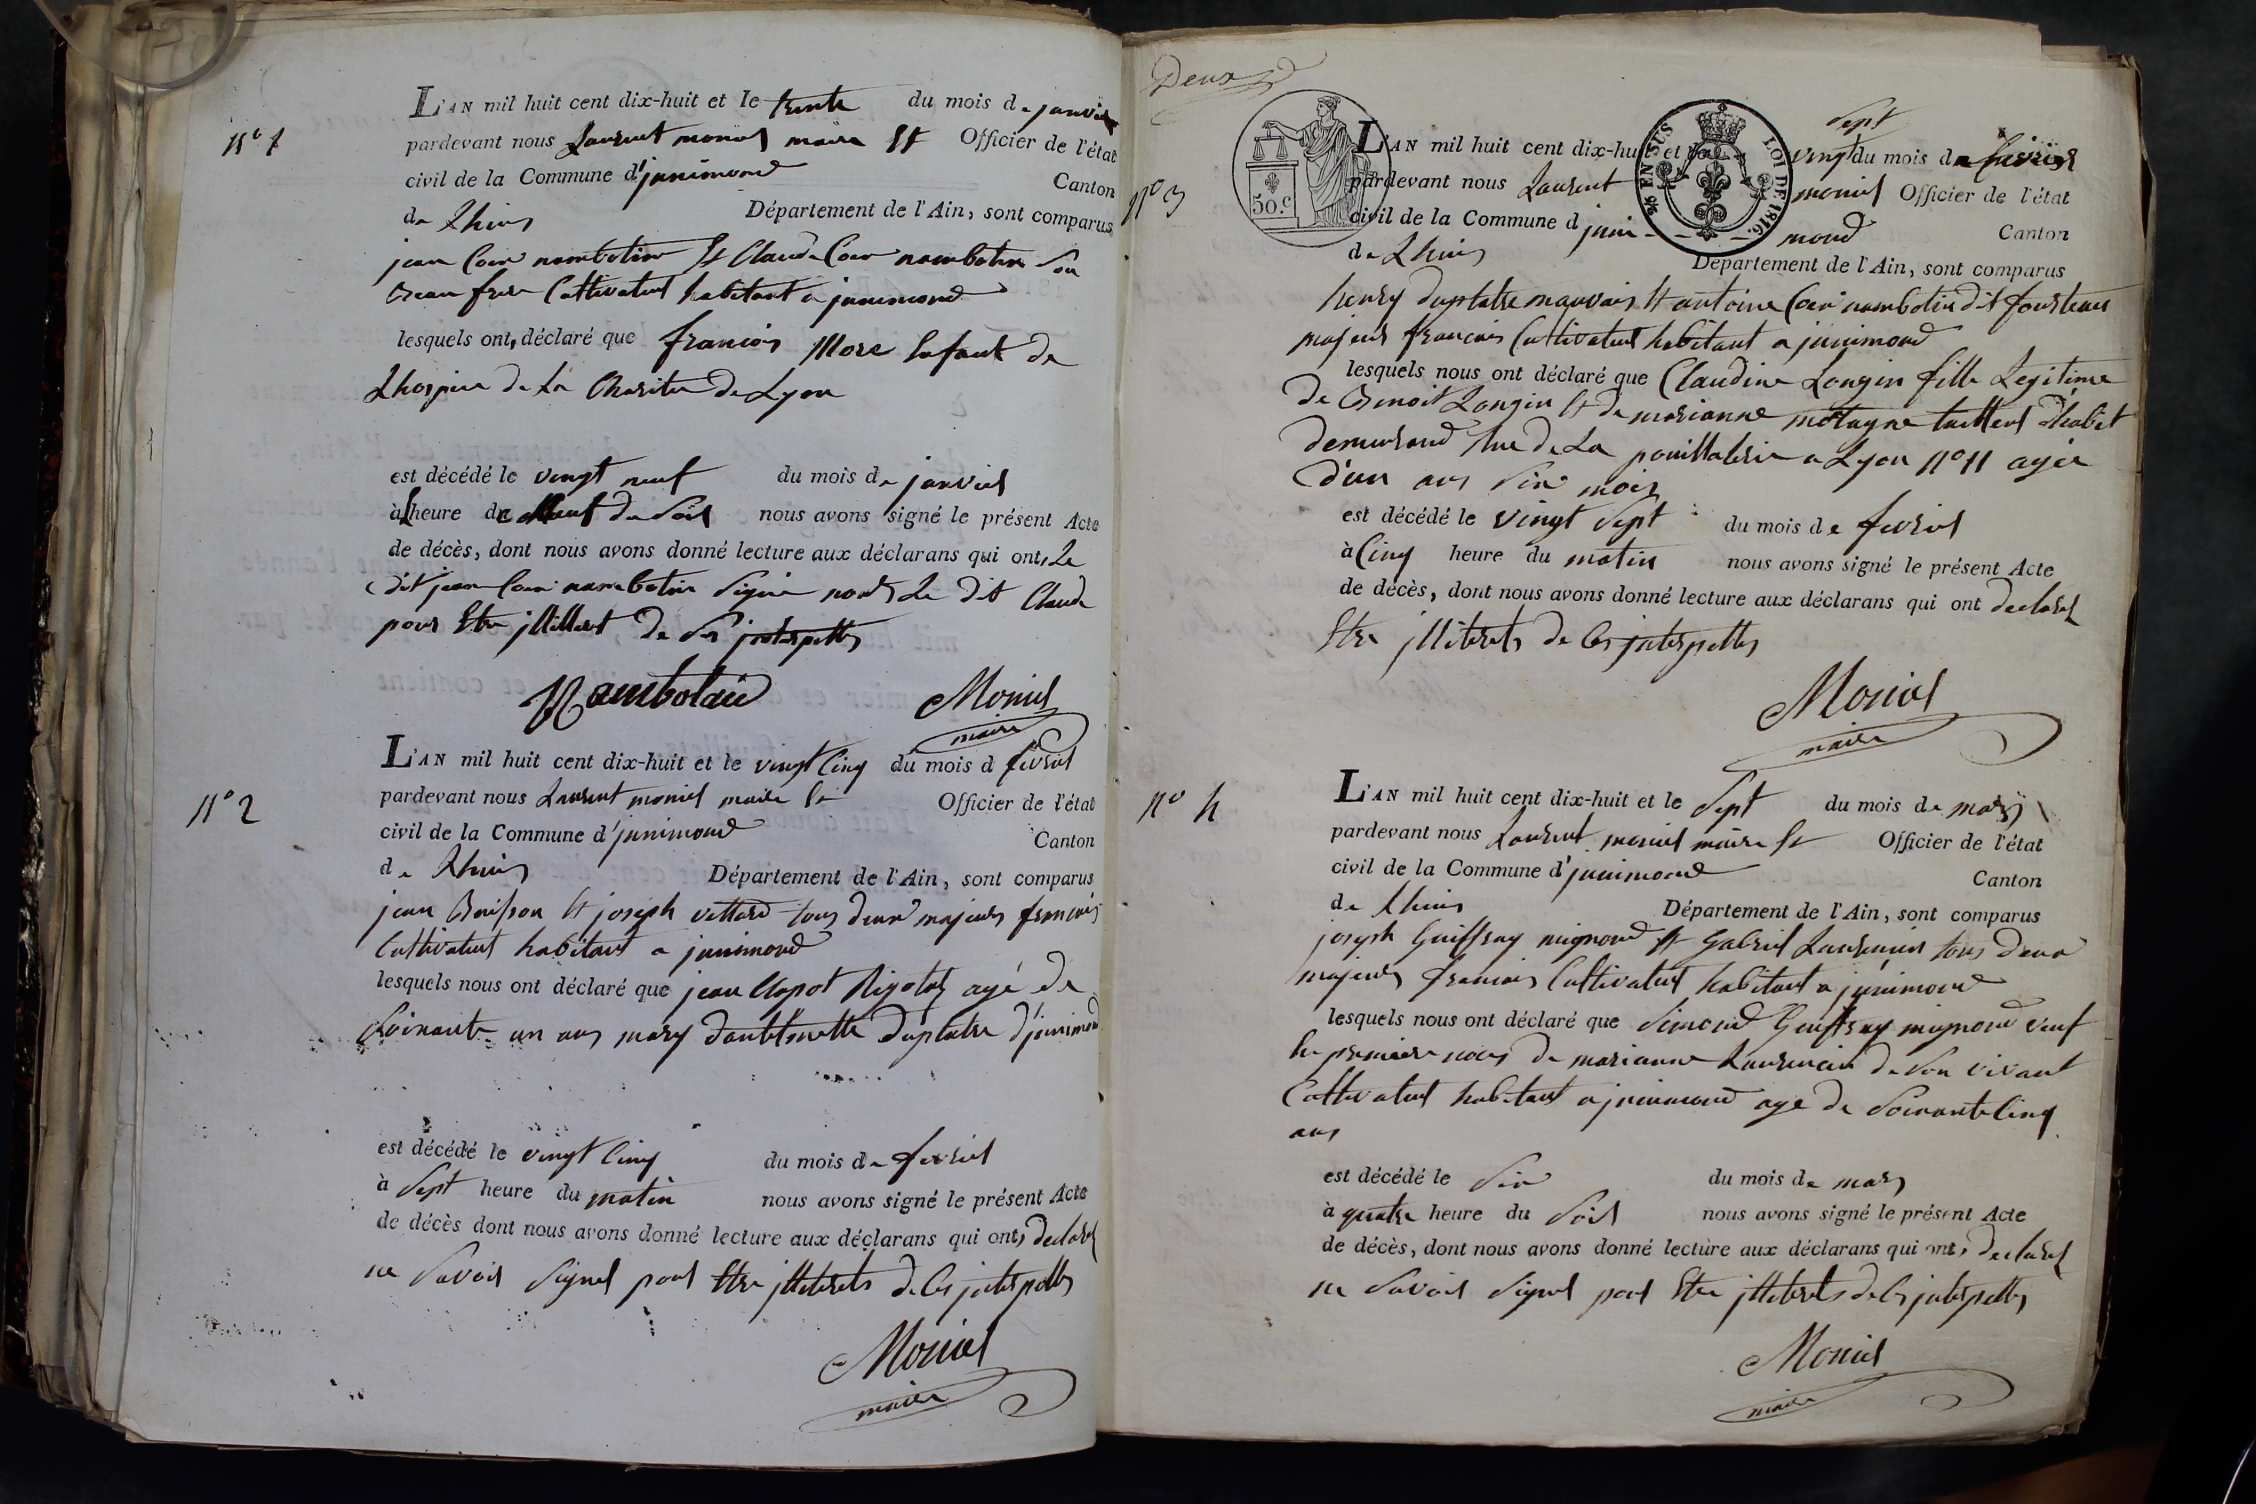 N° 1
L'AN mil huit cent dix-huit et le trente du mois de janvier
pardevant nous Laurent moniel maire et Officier de l'état
civil de la Commune d'junimond
Canton
de Lhuis Département de l'Ain, sont comparus
jean Coin nambotin et Claude Coin nambotin Son
Beau frere Cattivateur habitant a junimond
lesquels ont, déclaré que francois More Enfant de
Lhospice de La Charite de Lyon
est décédé le vingt neuf du mois de janvier
à heure de du Soir nous avons signé le présent Acte
de décès, dont nous avons donné lecture aux déclarans qui ont, Le
dit jean Coin nambotin Signé non Le dit Claude
pour Etre jlliteret de Ses jnterpettes
Nambotain Moniel
maire
N° 2
L'AN mil huit cent dix-huit et le vingt Cinq du mois d fevrier
pardevant nous Laurent moniel maire Et Officier de l'état
civil de la Commune d'junimond
Canton
de Lhuis Département de l'Ain, sont comparus
jean Buisson Et joseph vettard tous deux majeurs francais
Cattivateur habitant a junimond
lesquels nous ont déclaré que jean Chapot Rigolet agé de
Soixante un ans mary dantoinette Duplatre d'junimond
est décédé le vingt Cinq du mois de fevrier
à Sept heure du matin nous avons signé le présent Acte
de décès dont nous avons donné lecture aux déclarans qui ont, declaré
ne Savoir Signer pour Etre jlliterets de Ces jnterpettes
Moniel
maire
Deux
N° 3
50.c
2/5 EN SUS LOI DE 1816.
Sept
L'AN mil huit cent dix-huit et le vingt du mois de fevrier
pardevant nous Laurent moniel Officier de l'état
civil de la Commune d juni - - - mond
Canton
de Lhuis
Département de l'Ain, sont comparus
henry duplatre mauvais Et antoine Coin nambotin dit
majeur francais Cattivateur habitant a junimond
lesquels nous ont déclaré que Claudine Longin fille Legitime
de Benoit Longin Et de marianne motagne tailleur d'habit
demeurand Rue de La poullalerie a Lyon N° 11 agée
d'un ans Six mois
est décédé le vingt Sept du mois de fevrier
à Cinq heure du matin nous avons signé le présent Acte
de décès, dont nous avons donné lecture aux déclarans qui ont declaré
Etre jlliterets de Ces jnterpettes
Moniel
maire
N° 4
L'AN mil huit cent dix-huit et le Sept du mois de mars
pardevant nous Laurent moniel maire Et Officier de l'état
civil de la Commune d'junimond
Canton
de Lhuis
Département de l'Ain, sont comparus
joseph Guiffray mignond Et Gabriel Laurencin tous deux
majeurs francais Cattivateur habitant a junimond
lesquels nous ont déclaré que Simond Guiffray mignond veuf
En premiere noces de marianne Laurencin de Son vivant
Cattivateur habitant a junimond age de Soixante Cinq
ans
est décédé le Six du mois de mars
à quatre heure du Soir nous avons signé le présent Acte
de décès, dont nous avons donné lecture aux déclarans qui ont, declaré
ne Savoir Signer pour Etre jlliterets de Ces jnterpettes
Moniel
maire